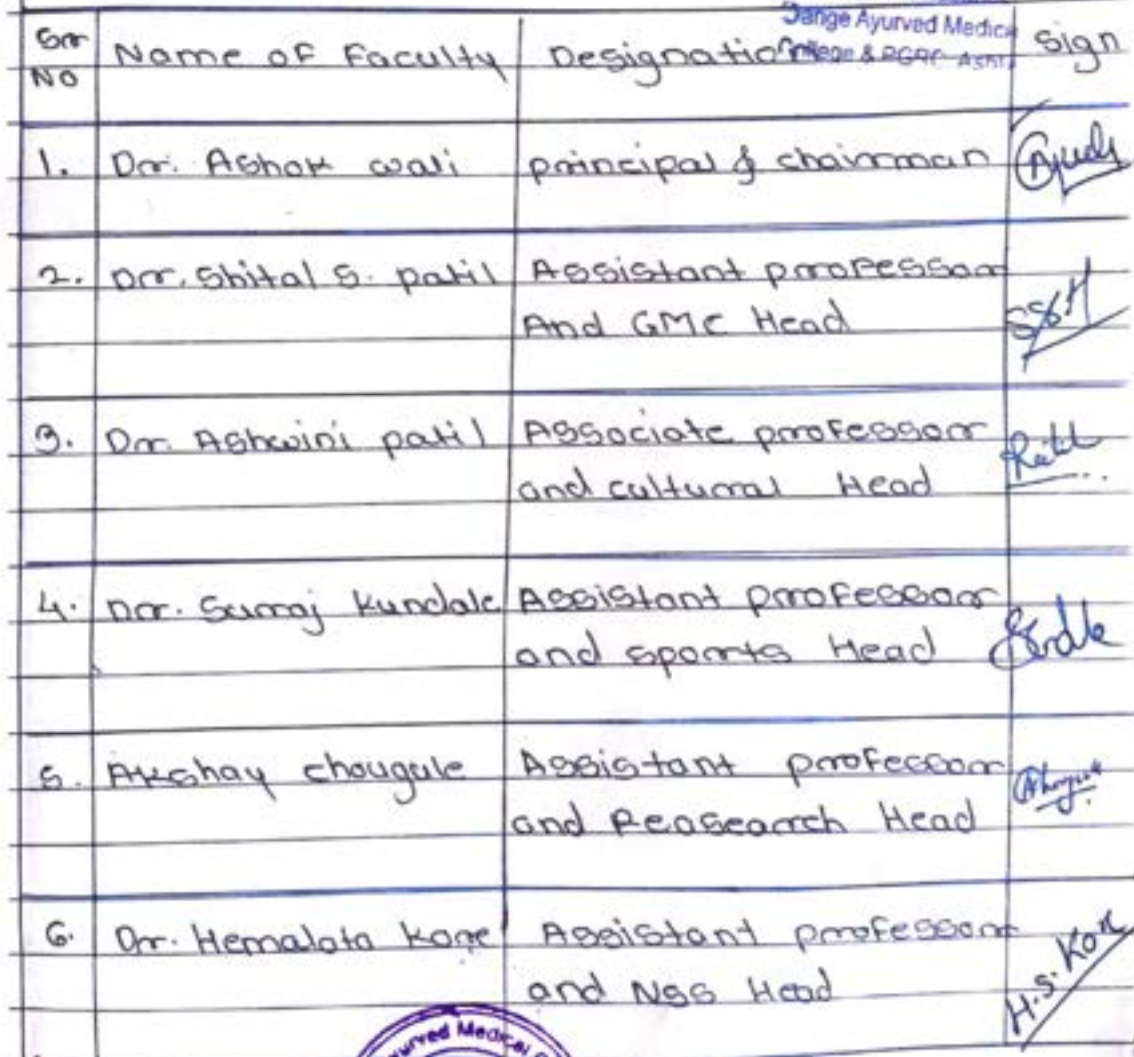 Dange Ayurved Medical
College & PGRC Ashta
Sr No Name of Faculty Designation Sign
1. Dr. Ashok wali principal & chairman
2. Dr. Shital S. patil Assistant professor
And GMC Head
3. Dr. Ashwini patil Associate professor
and cultural Head
4. Dr. Suraj Kundale Assistant professor
and sports Head
5. Akshay chougule Assistant professor
and Reasearch Head
6. Dr. Hemalata Kore Assistant professor
and NSS Head
H.S. Kore
Ayurved Medical